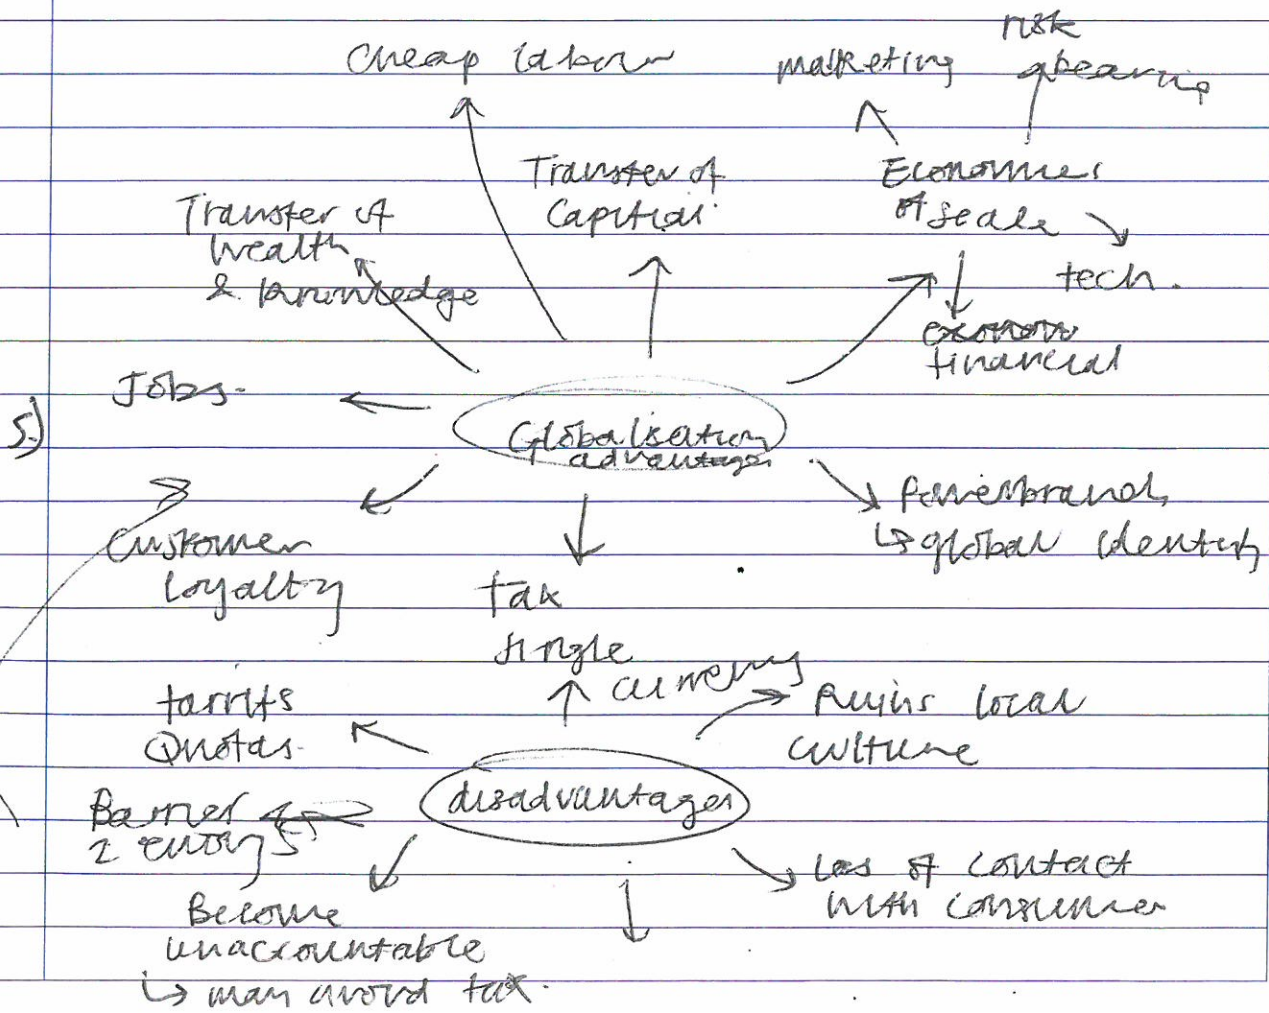 Cheap labour
marketing
risk
bearing
Transfer of
Capitial
Economies
of scale
tech.
financial
Transfer of
wealth
& knowledge
Jobs.
5.)
Globalisation
advantages
Powerbrands
↳ global identity
Customer
loyalty
tax
single
currency
tarrifs
Quotas.
Ruins local
culture
disadvantages
Barrier
2 entry
Become
unaccountable
↳ may avoid tax.
Loss of contact
with consumer